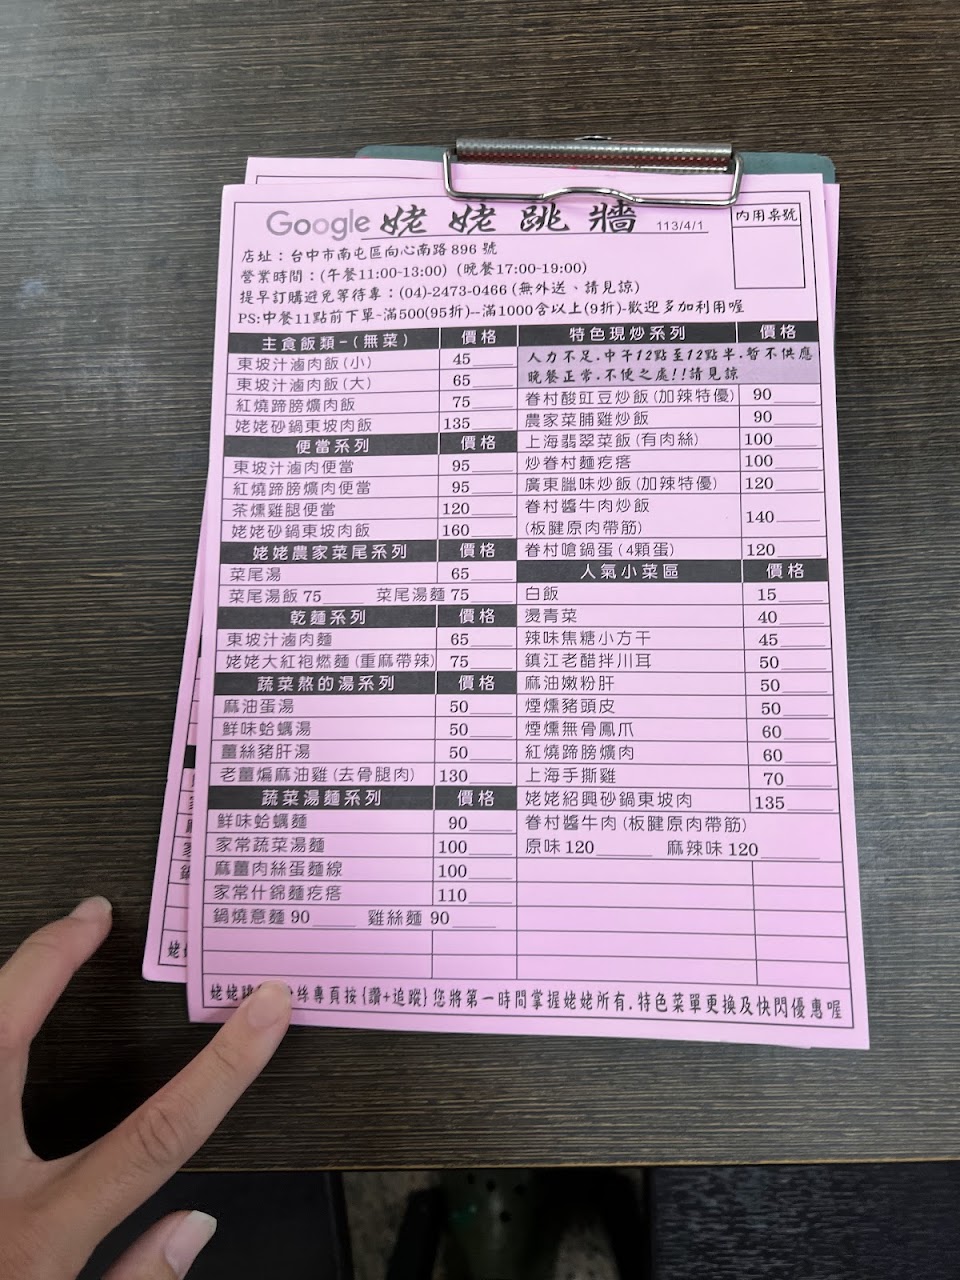 Google 姥姥跳牆 113/4/1
內用桌號
店址：台中市南屯區向心南路896號
營業時間：(午餐11:00-13:00) (晚餐17:00-19:00)
提早訂購避免等待專：(04)-2473-0466 (無外送、請見諒)
PS:中餐11點前下單-滿500(95折)--滿1000含以上(9折)-歡迎多加利用喔
主食飯類-(無菜) 價格
東坡汁滷肉飯(小) 45
東坡汁滷肉飯(大) 65
紅燒蹄膀爌肉飯 75
姥姥砂鍋東坡肉飯 135
便當系列 價格
東坡汁滷肉便當 95
紅燒蹄膀爌肉便當 95
茶燻雞腿便當 120
姥姥砂鍋東坡肉飯 160
姥姥農家菜尾系列 價格
菜尾湯 65
菜尾湯飯 75 菜尾湯麵 75
乾麵系列 價格
東坡汁滷肉麵 65
姥姥大紅袍燃麵(重麻帶辣) 75
蔬菜熬的湯系列 價格
麻油蛋湯 50
鮮味蛤蠣湯 50
薑絲豬肝湯 50
老薑煸麻油雞(去骨腿肉) 130
蔬菜湯麵系列 價格
鮮味蛤蠣麵 90
家常蔬菜湯麵 100
麻薑肉絲蛋麵線 100
家常什錦麵疙瘩 110
鍋燒意麵 90 雞絲麵 90
特色現炒系列
人力不足.中午12點至12點半.暫不供應
晚餐正常.不便之處!!請見諒
眷村酸豇豆炒飯(加辣特優) 90
農家菜脯雞炒飯 90
上海翡翠菜飯(有肉絲) 100
炒眷村麵疙瘩 100
廣東臘味炒飯(加辣特優) 120
眷村醬牛肉炒飯
(板腱原肉帶筋) 140
眷村嗆鍋蛋(4顆蛋) 120
人氣小菜區 價格
白飯 15
燙青菜 40
辣味焦糖小方干 45
鎮江老醋拌川耳 50
麻油嫩粉肝 50
煙燻豬頭皮 50
煙燻無骨鳳爪 60
紅燒蹄膀爌肉 60
上海手撕雞 70
姥姥紹興砂鍋東坡肉 135
眷村醬牛肉(板腱原肉帶筋)
原味 120 麻辣味 120
姥姥跳 絲專頁按{讚+追蹤}您將第一時間掌握姥姥所有.特色菜單更換及快閃優惠喔